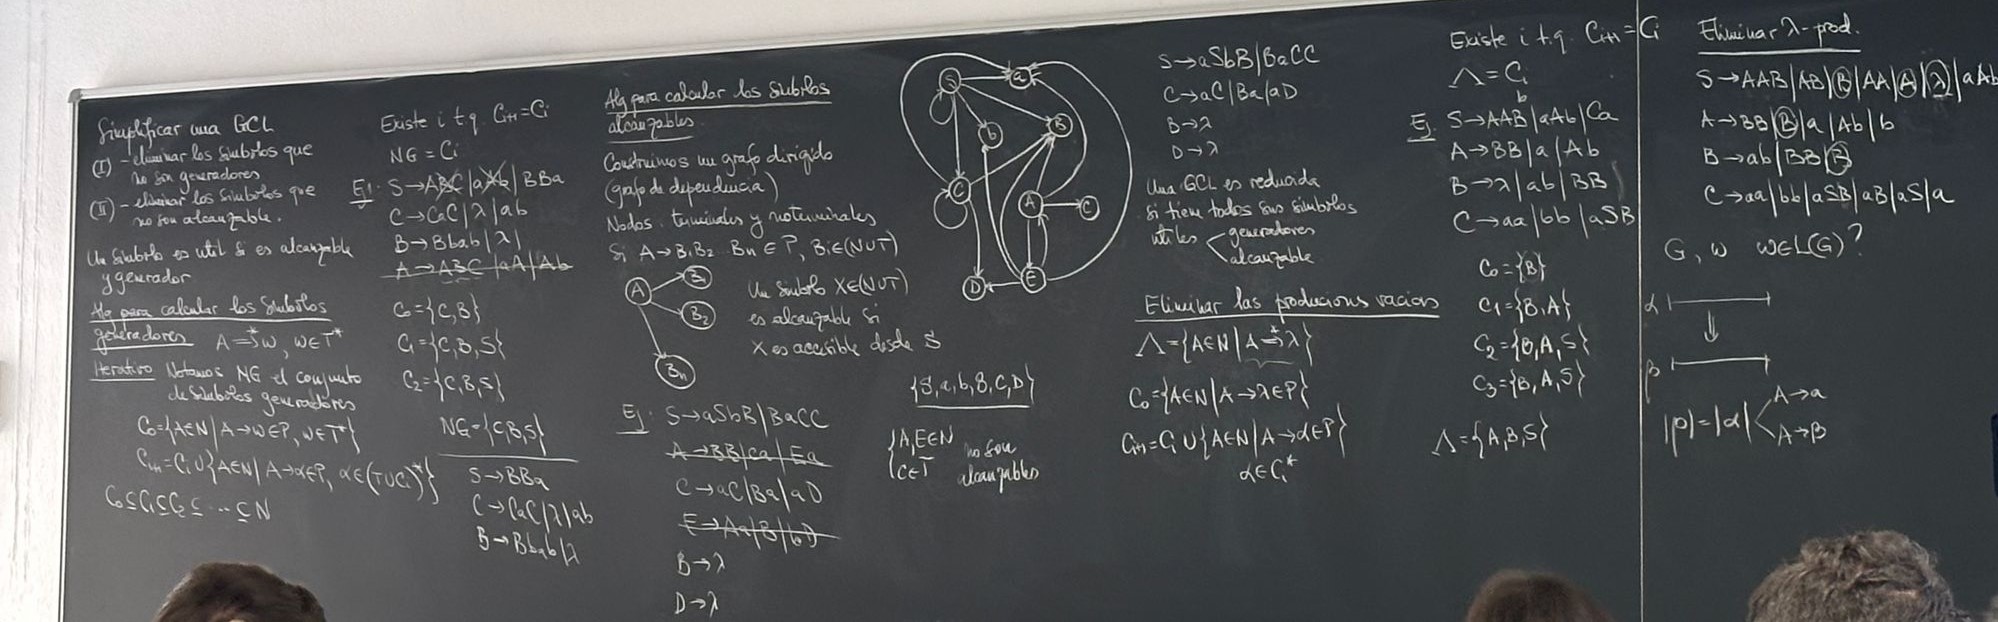 Simplificar una GCL
(I) - eliminar los símbolos que
no son generadores
(II) - eliminar los símbolos que
no son alcanzable.
Un símbolo es util si es alcanzable
y generador
Alg para calcular los símbolos
generadores A ⇒* w, w∈T*
Iterativo Notamos NG el conjunto
de símbolos generadores
C₀={A∈N | A→w∈P, w∈T*}
Cᵢ₊₁=Cᵢ∪{A∈N | A→α∈P, α∈(T∪Cᵢ)*}
C₀⊆C₁⊆C₂⊆ ... ⊆N
Existe i t.q. Cᵢ₊₁=Cᵢ
NG = Cᵢ
Ej: S→ABC|aAb|BBa
C→CaC|λ|ab
B→Bbab|λ|
A→ABC|aA|Ab
C₀={C,B}
C₁={C,B,S}
C₂={C,B,S}
NG={C,B,S}
S→BBa
C→CaC|λ|ab
B→Bbab|λ
Alg para calcular los símbolos
alcanzables.
Construimos un grafo dirigido
(grafo de dependencia)
Nodos: terminales y noterminales
Si A→B₁B₂...Bₙ∈P, Bᵢ∈(N∪T)
A
B₁
B₂
Bₙ
Un símbolo X∈(N∪T)
es alcanzable si
X es accesible desde S
Ej: S→aSbB|BaCC
A→BB|ca|Ea
C→aC|Ba|aD
E→Aa|B|bD
B→λ
D→λ
S
a
b
B
C
A
c
D
E
{S,a,b,B,C,D}
{A,E∈N
c∈T
no son
alcanzables
S→aSbB|BaCC
C→aC|Ba|aD
B→λ
D→λ
Una GCL es reducida
si tiene todos sus símbolos
utiles < generadores
alcanzable
Eliminar las producions vacias
Λ={A∈N | A⇒*λ}
C₀={A∈N | A→λ∈P}
Cᵢ₊₁=Cᵢ∪{A∈N | A→α∈P}
α∈Cᵢ*
Existe i t.q. Cᵢ₊₁=Cᵢ
Λ=Cᵢ
Ej. S→AAB|aAb|Ca
A→BB|a|Ab
B→λ|ab|BB
C→aa|bb|aSB
C₀={B}
C₁={B,A}
C₂={B,A,S}
C₃={B,A,S}
Λ={A,B,S}
Eliminar λ-prod.
S→AAB|AB|B|AA|A|λ|aAb
A→BB|B|a|Ab|b
B→ab|BB|B
C→aa|bb|aSB|aB|aS|a
G, w w∈L(G)?
α
⇓
β
|β|=|α| < A→a
A→B